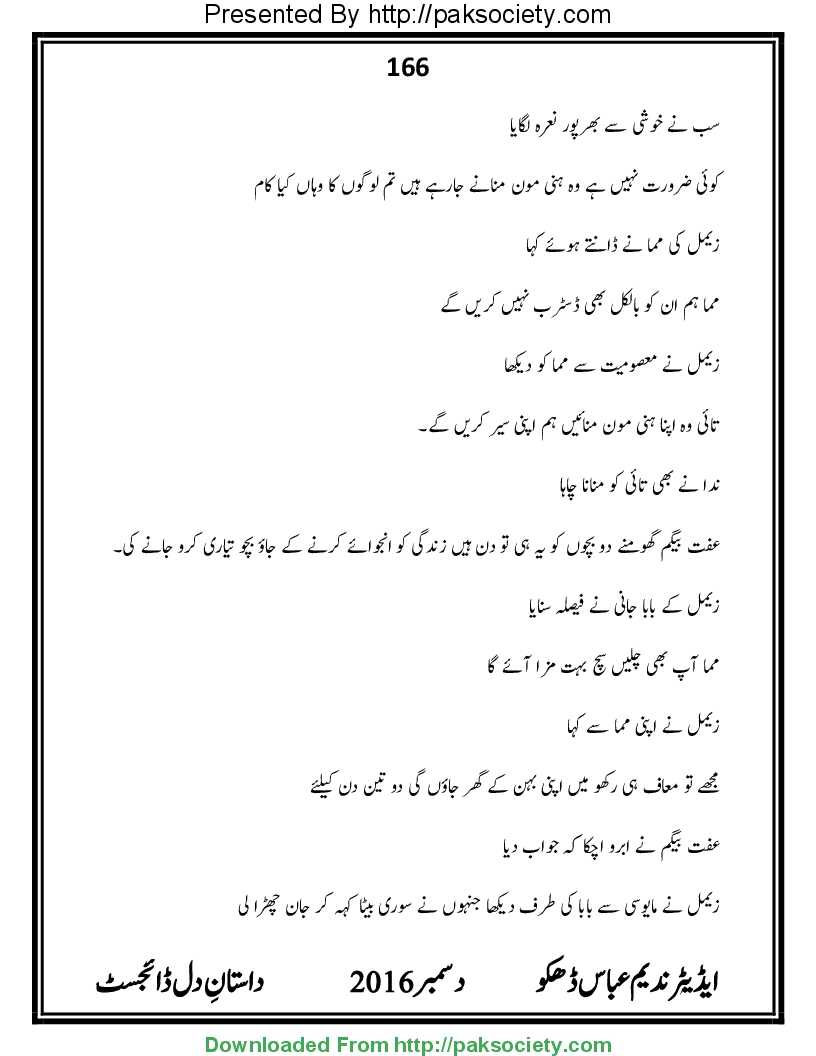 Presented By http://paksociety.com
166
سب نے خوشی سے بھرپور نعرہ لگایا
کوئی ضرورت نہیں ہے وہ ہنی مون منانے جارہے ہیں تم لوگوں کا وہاں کیا کام
زیمل کی مما نے ڈانٹتے ہوئے کہا
مما ہم ان کو بالکل بھی ڈسٹرب نہیں کریں گے
زیمل نے معصومیت سے مما کو دیکھا
تائی وہ اپنا ہنی مون منائیں ہم اپنی سیر کریں گے۔
ندا نے بھی تائی کو منانا چاہا
عفت بیگم گھومنے دو بچوں کو یہ ہی تو دن ہیں زندگی کو انجوائے کرنے کے جاؤ بچو تیاری کرو جانے کی۔
زیمل کے بابا جانی نے فیصلہ سنایا
مما آپ بھی چلیں سچ بہت مزا آئے گا
زیمل نے اپنی مما سے کہا
مجھے تو معاف ہی رکھو میں اپنی بہن کے گھر جاؤں گی دو تین دن کیلئے
عفت بیگم نے ابرو اچکا کہ جواب دیا
زیمل نے مایوسی سے بابا کی طرف دیکھا جنہوں نے سوری بیٹا کہہ کر جان چھڑا لی
ایڈیٹر ندیم عباس ڈھکو دسمبر 2016 داستانِ دل ڈائجسٹ
Downloaded From http://paksociety.com